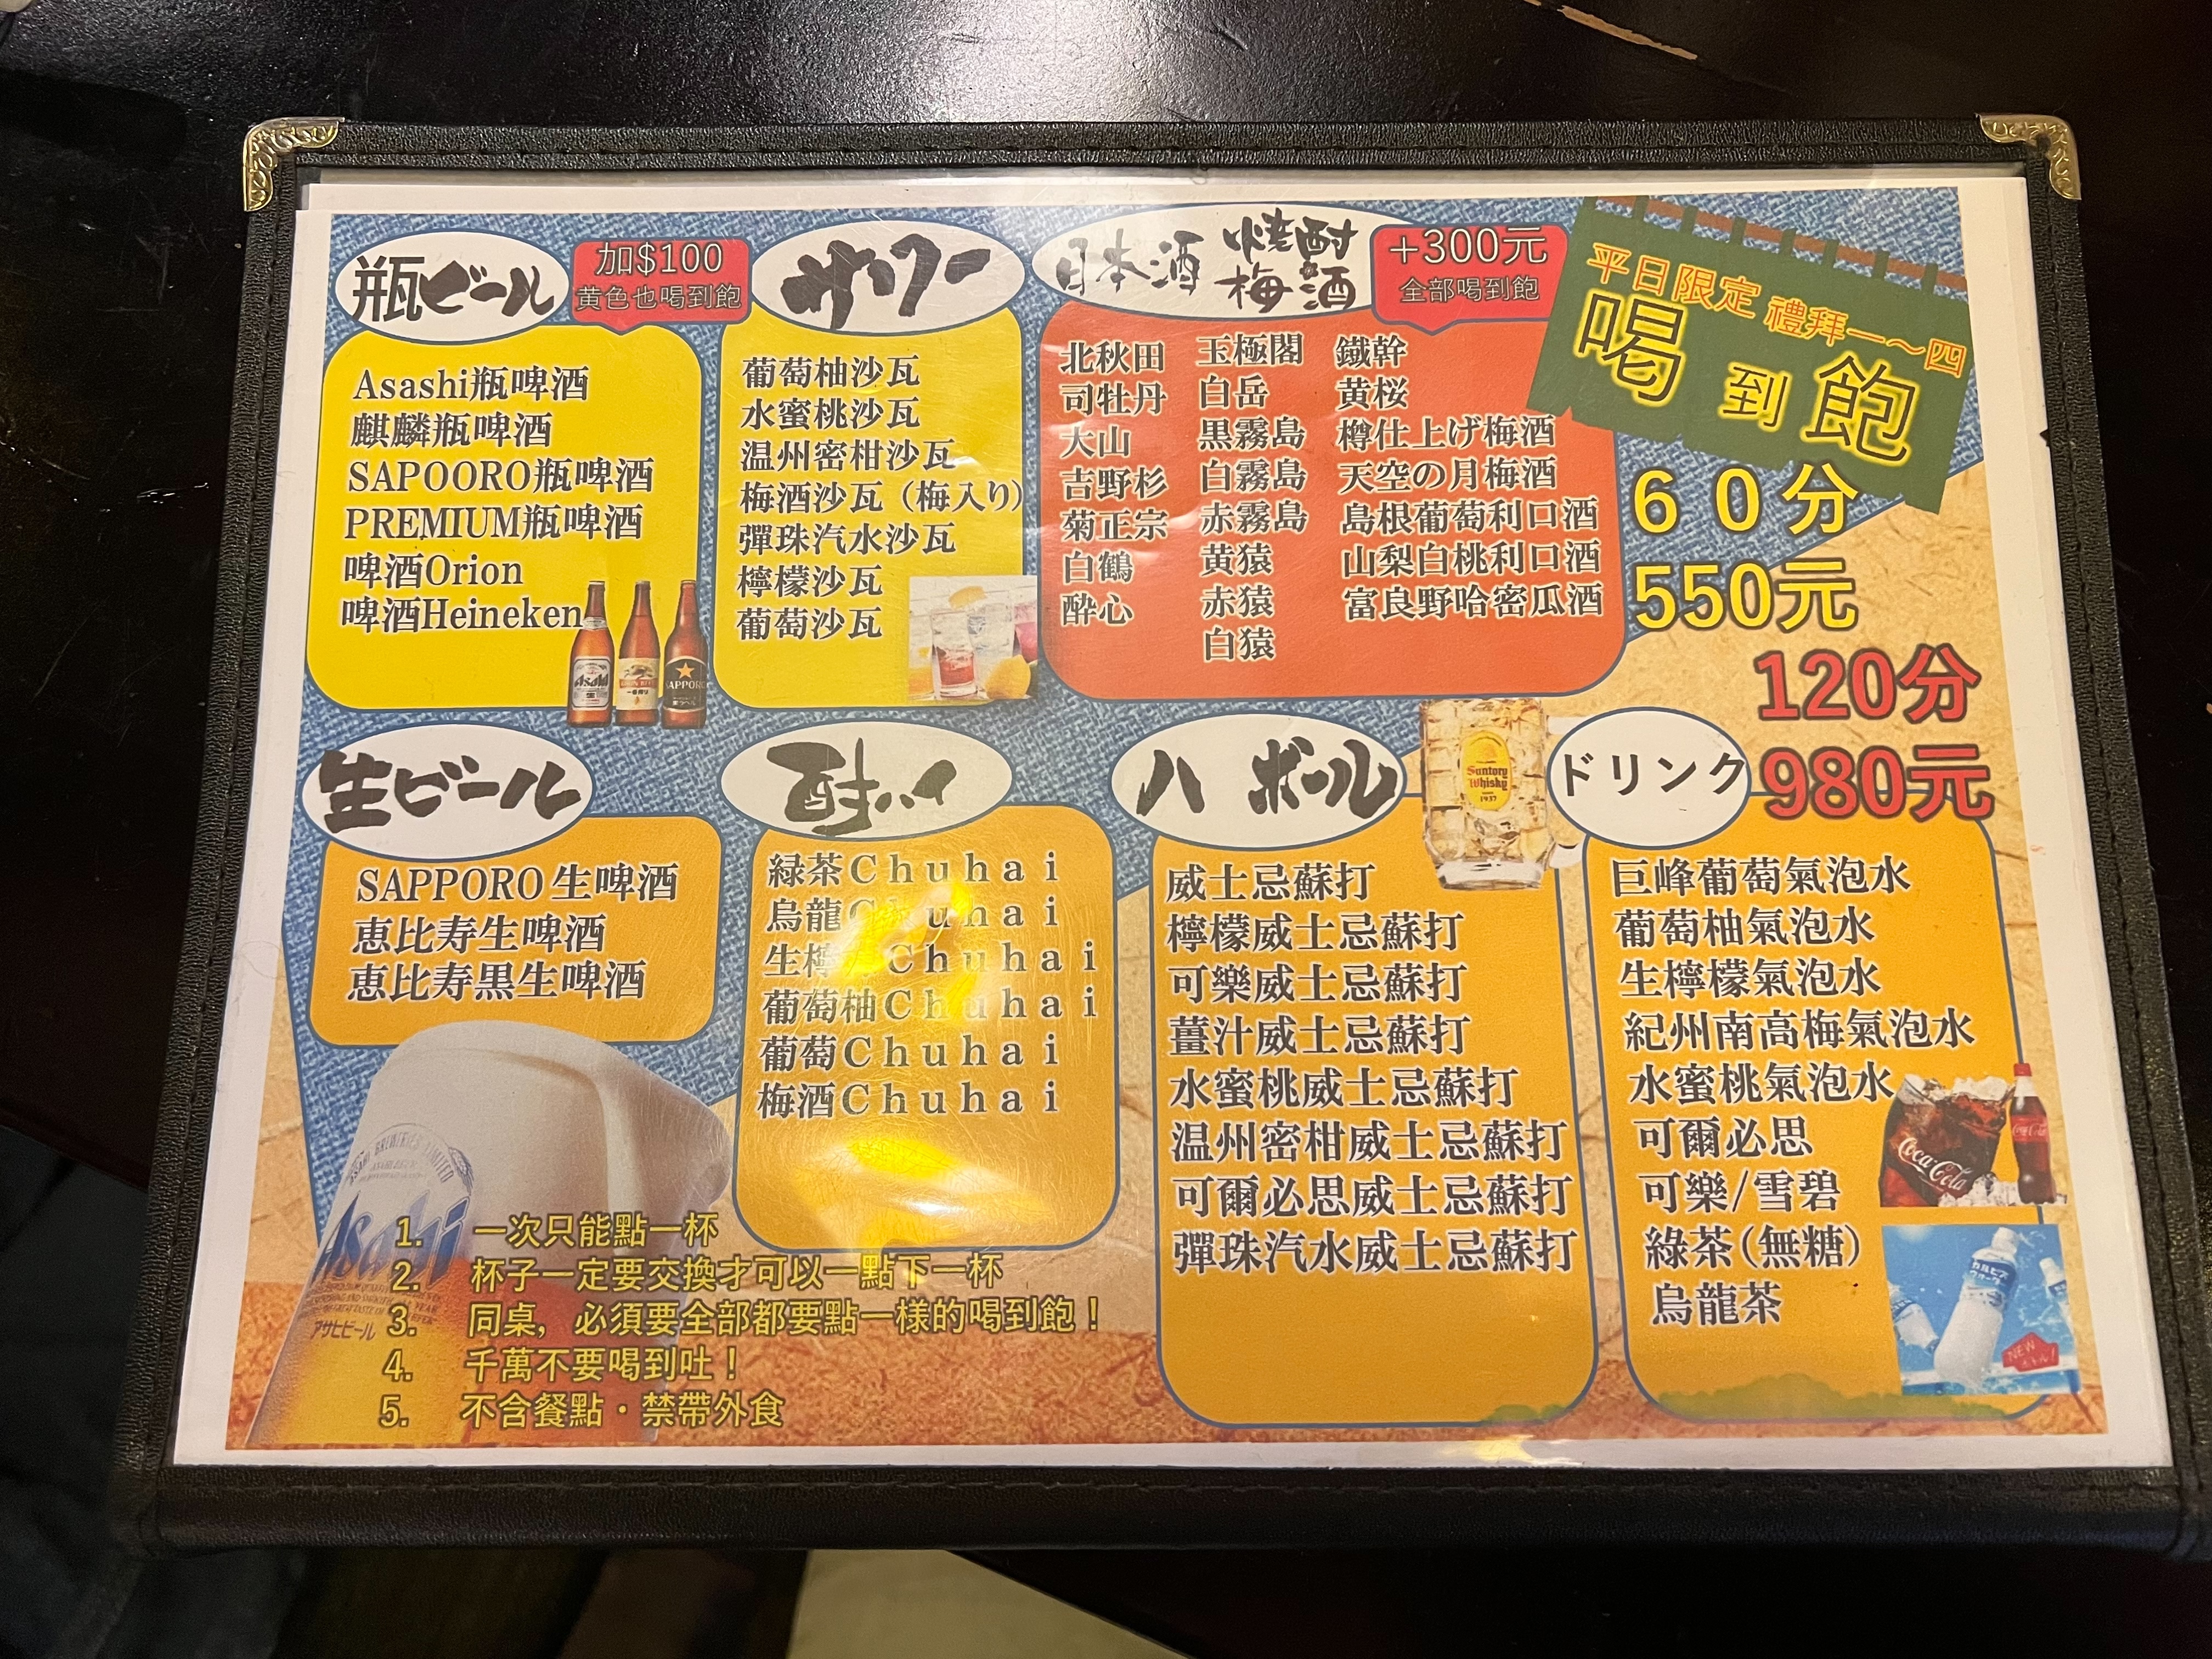 瓶ビール
加$100
黄色也喝到飽
Asashi瓶啤酒
麒麟瓶啤酒
SAPOORO瓶啤酒
PREMIUM瓶啤酒
啤酒Orion
啤酒Heineken
Asahi
SAPPORO
サワー
葡萄柚沙瓦
水蜜桃沙瓦
温州密柑沙瓦
梅酒沙瓦（梅入り）
彈珠汽水沙瓦
檸檬沙瓦
葡萄沙瓦
日本酒 焼酎
梅酒
+300元
全部喝到飽
北秋田
司牡丹
大山
吉野杉
菊正宗
白鶴
酔心
玉極閣
白岳
黒霧島
白霧島
赤霧島
黄猿
赤猿
白猿
鐵幹
黄桜
樽仕上げ梅酒
天空の月梅酒
島根葡萄利口酒
山梨白桃利口酒
富良野哈密瓜酒
平日限定 禮拜一～四
喝到飽
60分
550元
120分
980元
生ビール
SAPPORO生啤酒
恵比寿生啤酒
恵比寿黒生啤酒
酎ハイ
緑茶Chuhai
烏龍Chuhai
生檸 Chuhai
葡萄柚Chuhai
葡萄Chuhai
梅酒Chuhai
ハ ボール
Suntory
Whisky
1937
威士忌蘇打
檸檬威士忌蘇打
可樂威士忌蘇打
薑汁威士忌蘇打
水蜜桃威士忌蘇打
温州密柑威士忌蘇打
可爾必思威士忌蘇打
彈珠汽水威士忌蘇打
ドリンク
巨峰葡萄氣泡水
葡萄柚氣泡水
生檸檬氣泡水
紀州南高梅氣泡水
水蜜桃氣泡水
可爾必思
可樂/雪碧
綠茶(無糖)
烏龍茶
Coca-Cola
NEW
Asahi
アサヒビール
1. 一次只能點一杯
2. 杯子一定要交換才可以一點下一杯
3. 同桌，必須要全部都要點一樣的喝到飽！
4. 千萬不要喝到吐！
5. 不含餐點・禁帶外食